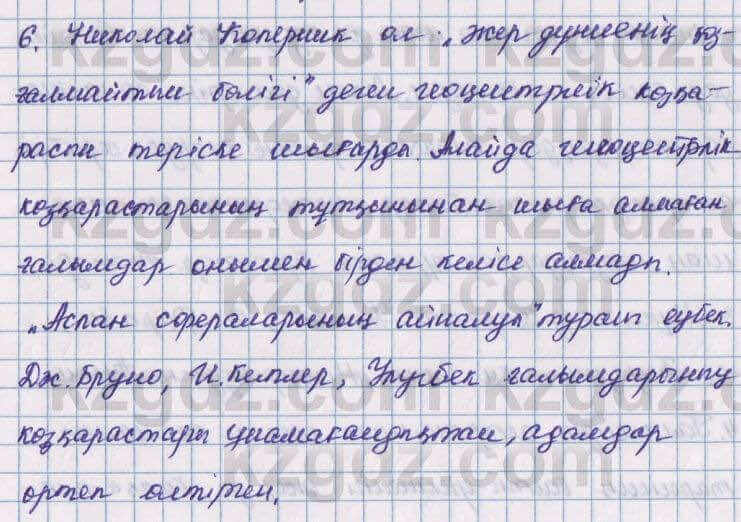 6. Николай Коперник ол „жер дүниенің қоз-
ғалмайтын бөлігі" деген геоцентрлік көзқа-
расты теріске шығарды. Алайда гелиоцентрлік
көзқарастарының тұтқынынан шыға алмаған
ғалымдар онымен бірден келісе алмады.
„Аспан сфераларының айналуы" туралы еңбек.
Дж. Бруно, И. Кеплер, Ұлугбек ғалымдарының
көзқарастары ұнамағандықтан, адамдар
өртеп өлтірген.
kzgdz.com